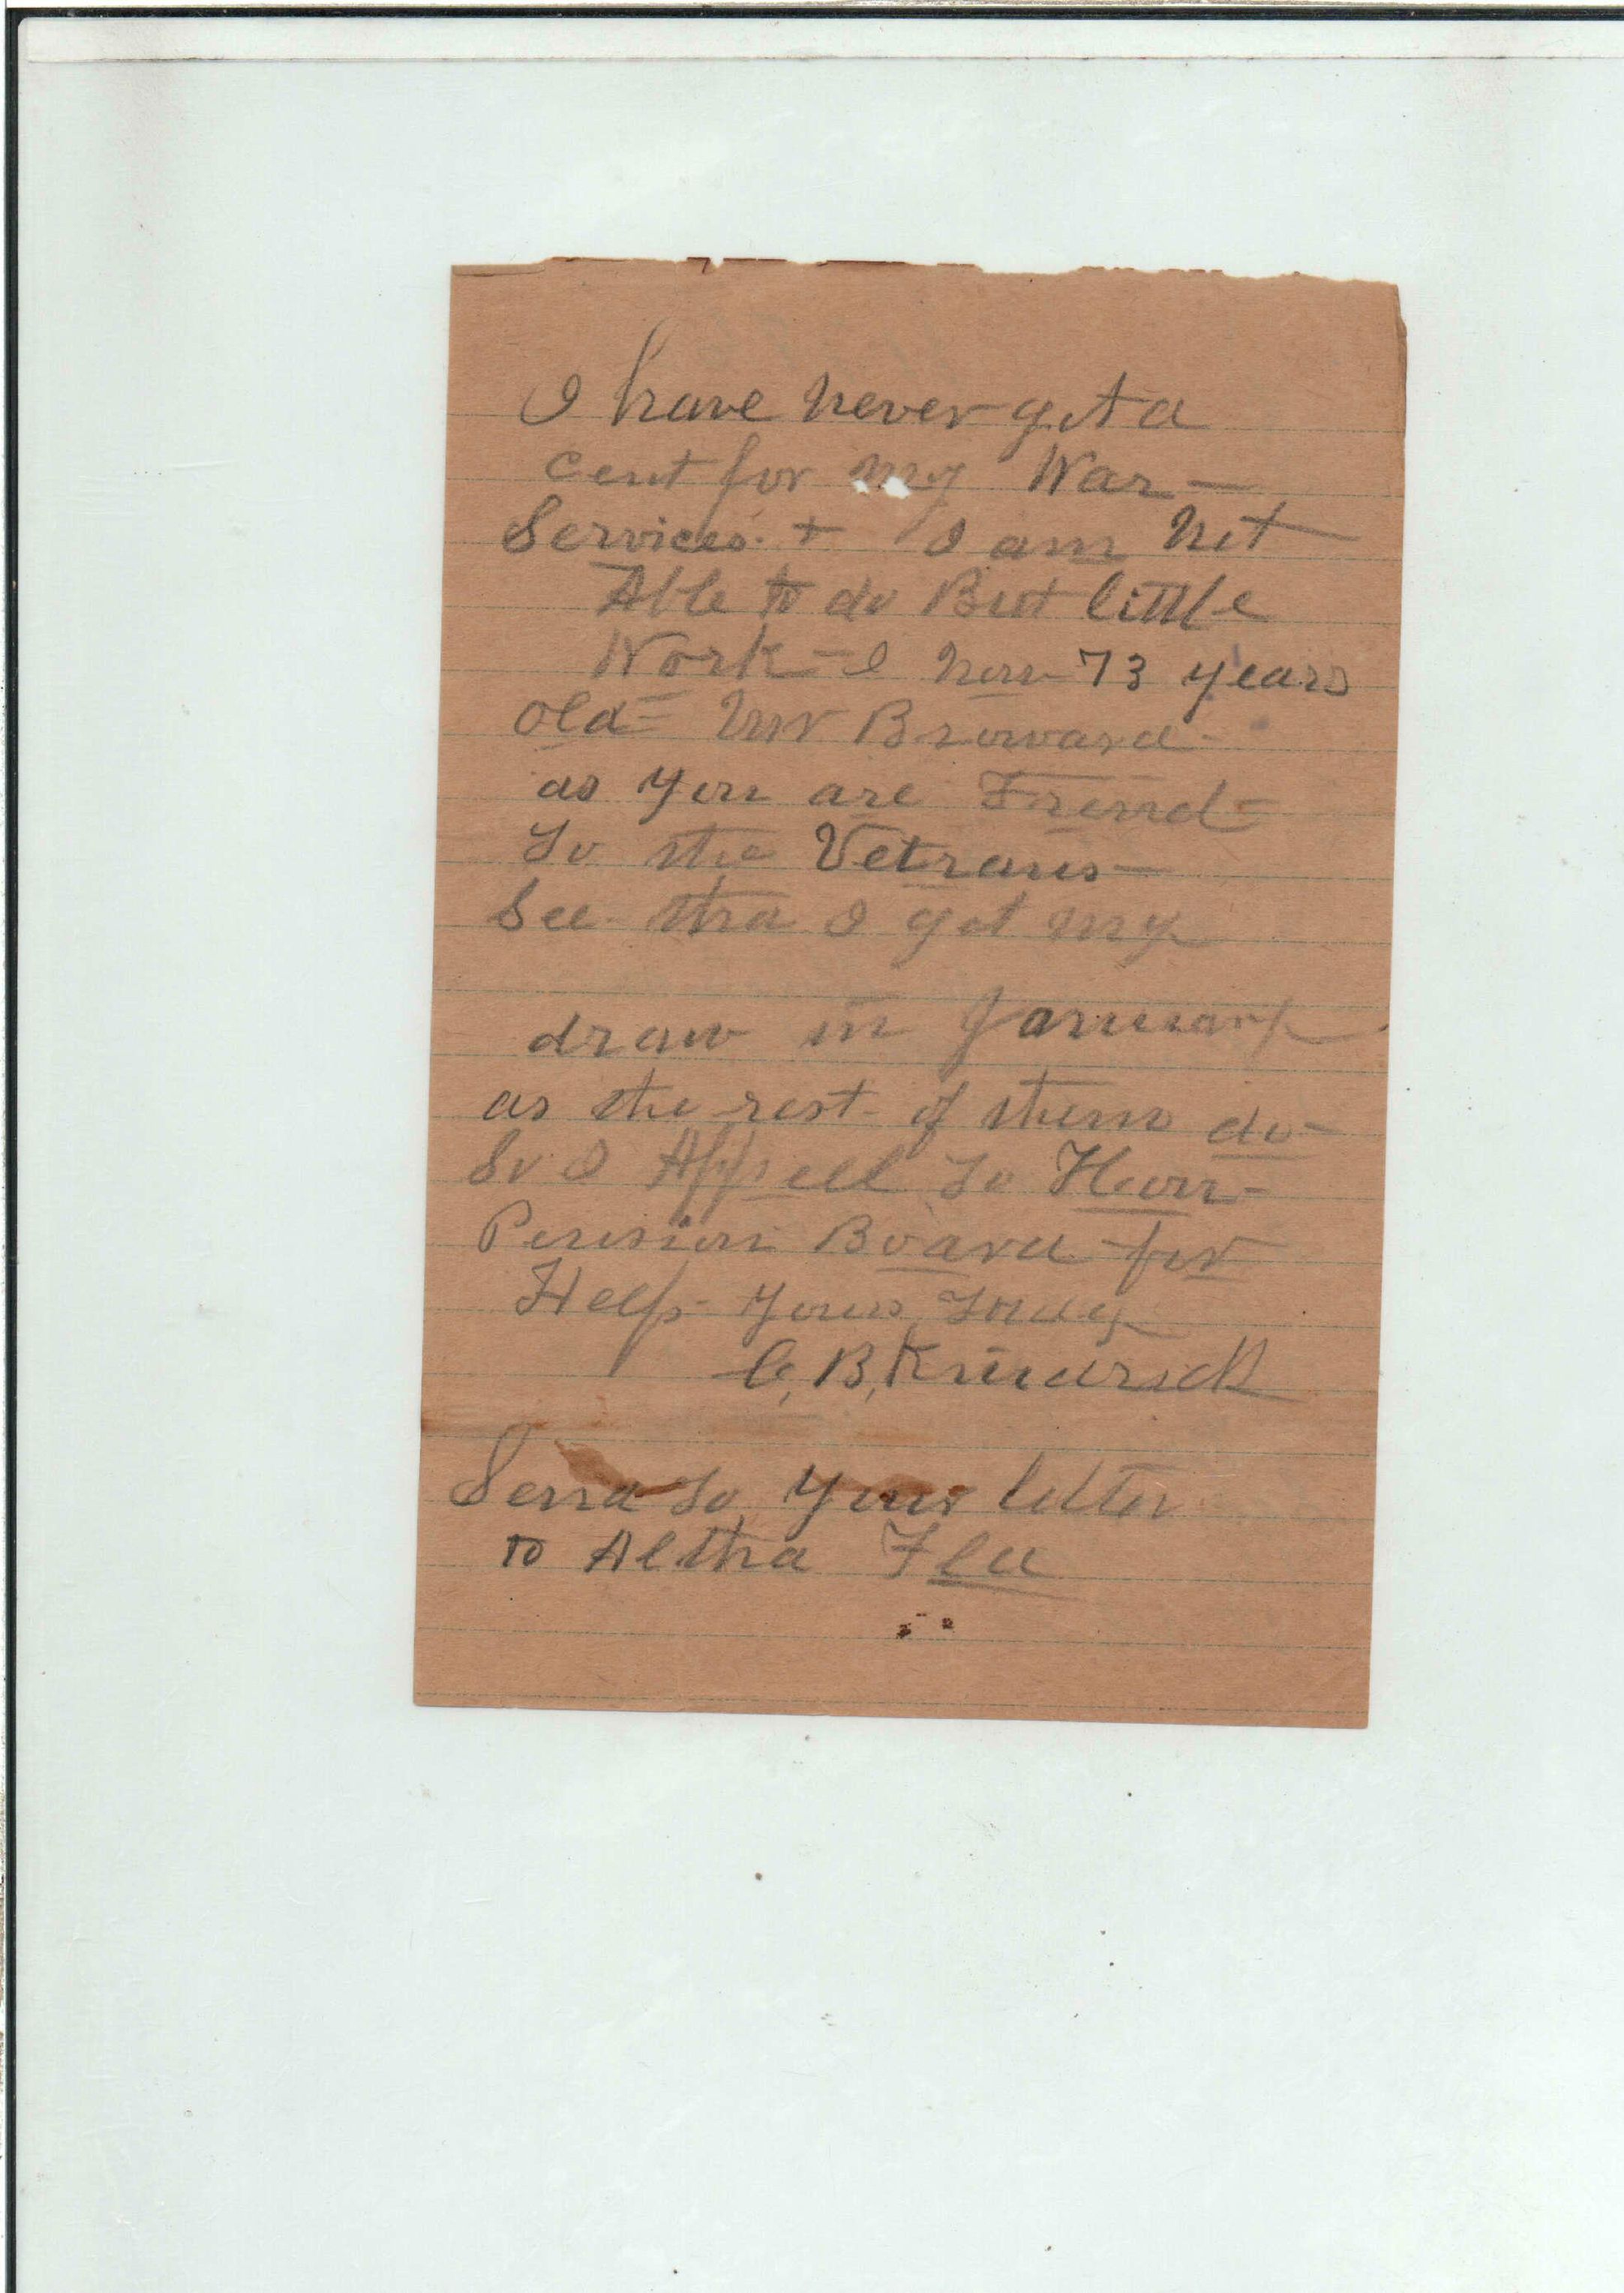 I have never got a
cent for my War —
Services. + I am not
Able to do But little
Work — I now 73 years
old = Mr Broward
as you are Friend =
To the Vetrans —
See tha I get my
draw in January
as the rest of them do —
So I Appeel to Hon —
Pension Board for
Help - Yours Truly
C, B,
Send to your letter
to Altha Fla